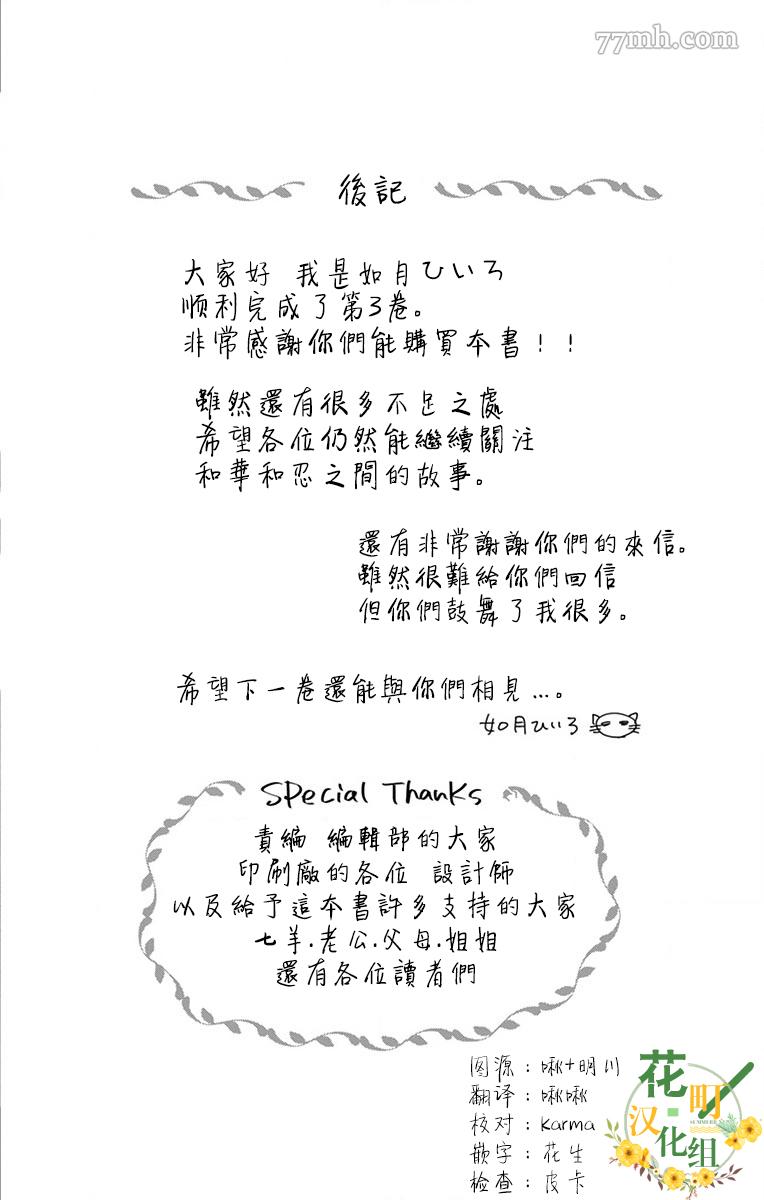 77mh.com
後記
大家好 我是如月ひいろ
順利完成了第3卷。
非常感謝你們能購買本書！！
雖然還有很多不足之處
希望各位仍然能繼續關注
和華和忍之間的故事。
還有非常謝謝你們的來信。
雖然很難給你們回信
但你們鼓舞了我很多。
希望下一卷還能與你們相見…。
如月ひいろ
Special Thanks
責編 編輯部的大家
印刷廠的各位 設計師
以及給予這本書許多支持的大家
七羊.老公.父母.姐姐
還有各位讀者們
图源：啾+明川
翻译：啾啾
校对：Karma
嵌字：花生
检查：皮卡
花町
汉化组